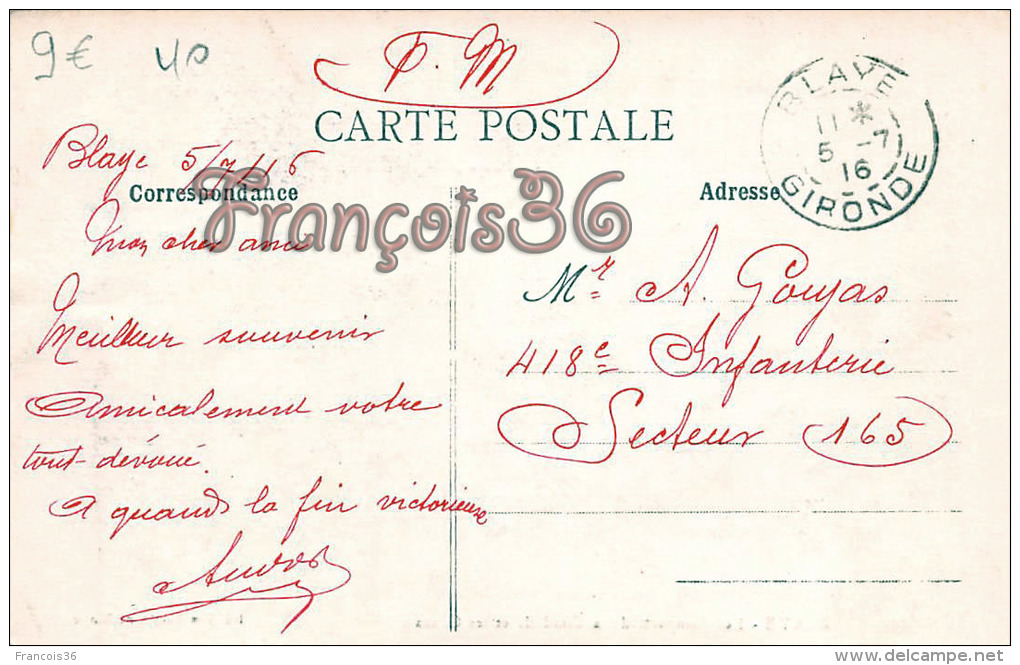 9€ 40
F. M
CARTE POSTALE
BLAYE
11 *
5 -7
16
GIRONDE
Blaye 5/7/16
Correspondance
Adresse
François36
Mon cher ami
Meilleur souvenir
Amicalement votre
tout dévoué.
A quand la fin victorieuse
Mr A. Goujas
418e Infanterie
Secteur 165
Francois36
www.delcampe.net